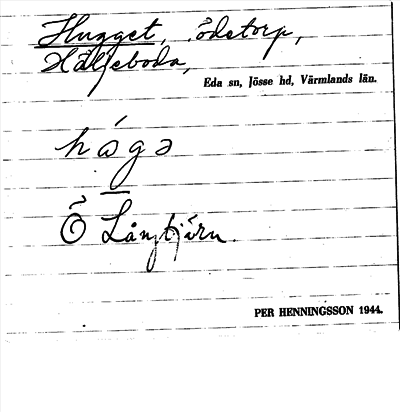 Hugget, ödetorp,
Häljeboda,
Eda sn, Jösse hd, Värmlands län.
hágə
Ö Långtjärn.
PER HENNINGSSON 1944.